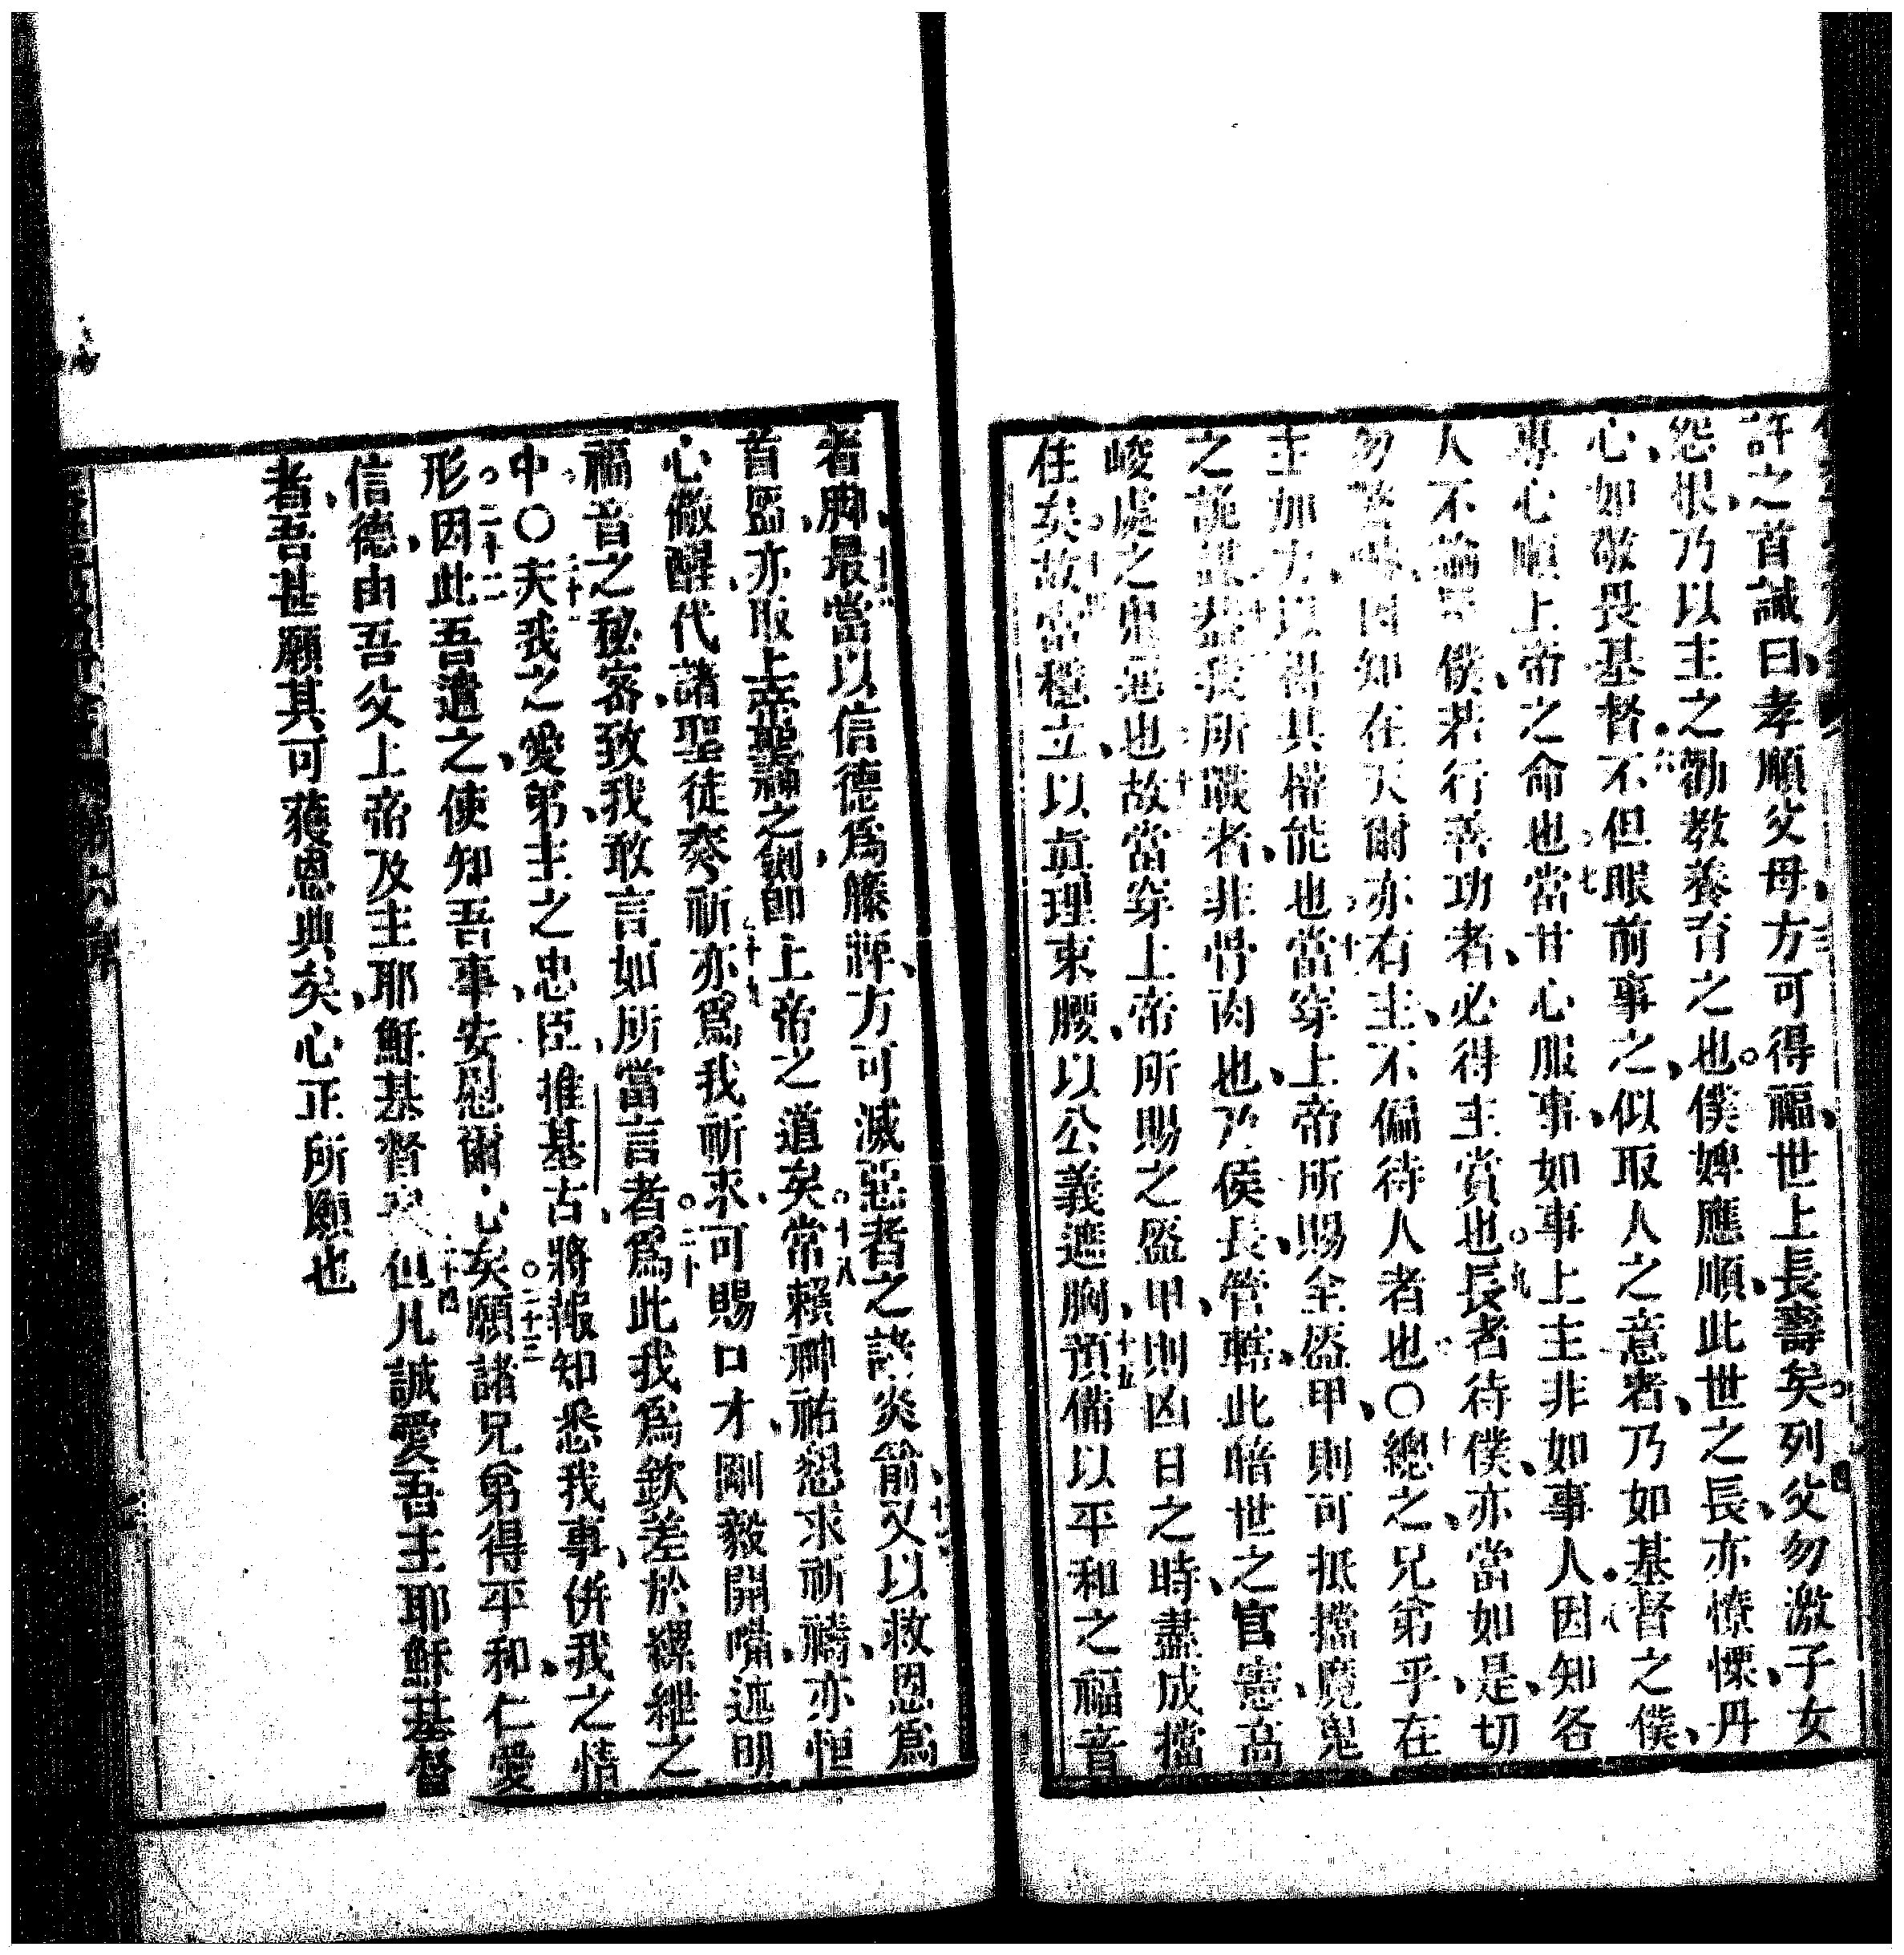 許之首誡曰孝順父母方可得福世上長壽矣列父勿激子女
怨恨乃以主之勸教養育之也僕婢應順此世之長亦憭慄丹
心如敬畏基督不但眼前事之似取人之意者乃如基督之僕
專心順上帝之命也當甘心服事如事上主非如事人因知各
人不論僕若行善功者必得主賞也長者待僕亦當如是切
勿因知在天爾亦有主不偏待人者也〇總之兄弟乎在
主加力以得其權能也當穿上帝所賜全盔甲則可抵擋魔鬼
之詭我所戰者非骨肉也乃侯長管轄此暗世之官憲高
峻處之也故當穿上帝所賜之盔甲則凶日之時盡成擋
住矣故當穩立以真理束腰以公義遮胸預備以平和之福音
着脚最當以信德爲籐牌方可滅惡者之諸炎箭又以救恩爲
首盔亦取上帝聖神之劍即上帝之道矣常賴神祐懇求祈禱亦恒
心儆醒代諸聖徒奏祈亦爲我祈求可賜口才剛毅開嘴述明
福音之秘密致我敢言如所當言者爲此我爲欽差於縲絏之
中〇夫我之愛弟主之忠臣推基古將報知悉我事併我之情
形因此吾遣之使知吾事安慰爾心矣願諸兄弟得平和仁愛
信德由吾父上帝及主耶穌基督但凡誠愛吾主耶穌基督
者吾甚願其可獲恩典矣心正所願也